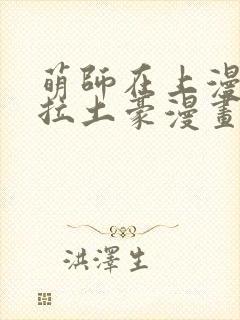 萌師在上漫
拉土豪漫畫
洪澤生